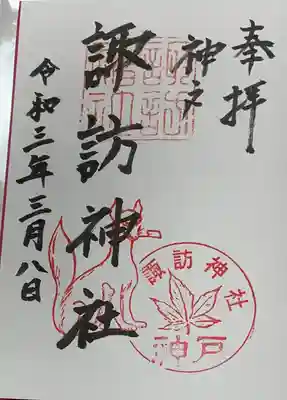 奉拝
神戸
諏訪神社
令和三年三月八日
諏訪神社
神戸